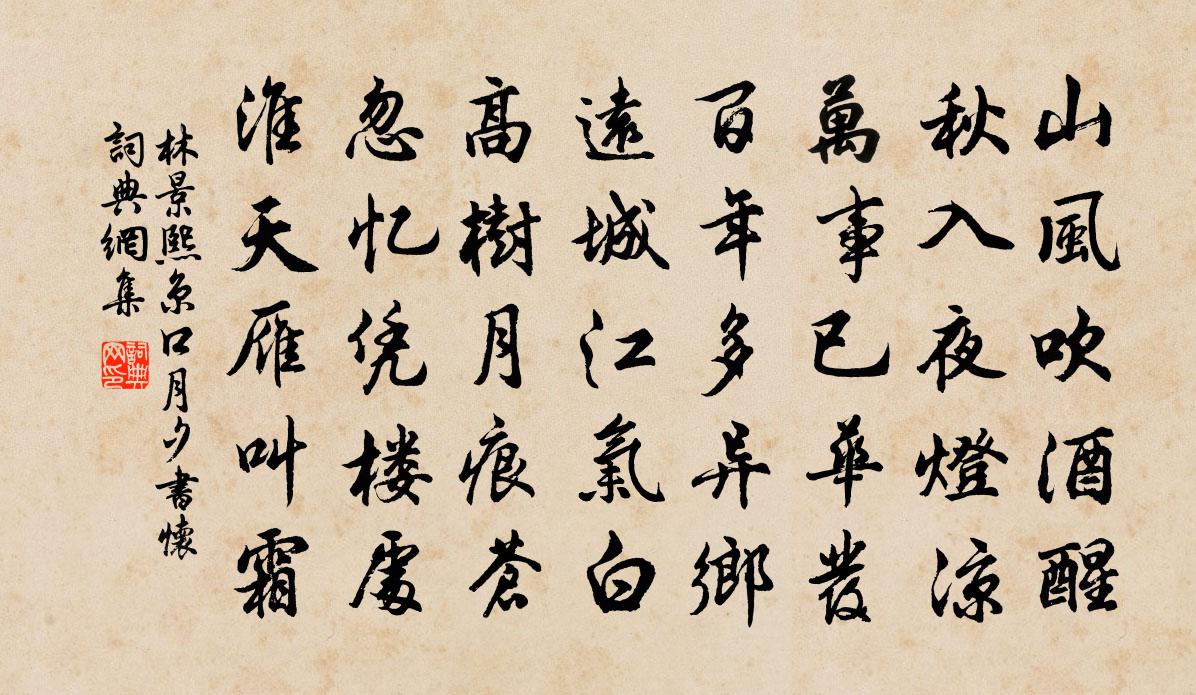 山風吹酒醒
秋入夜燈涼
萬事已華發
百年多异鄉
遠城江氣白
高樹月痕蒼
忽忆凭楼處
淮天雁叫霜
林景熙京口月夕書懷
詞典網集
詞典網印